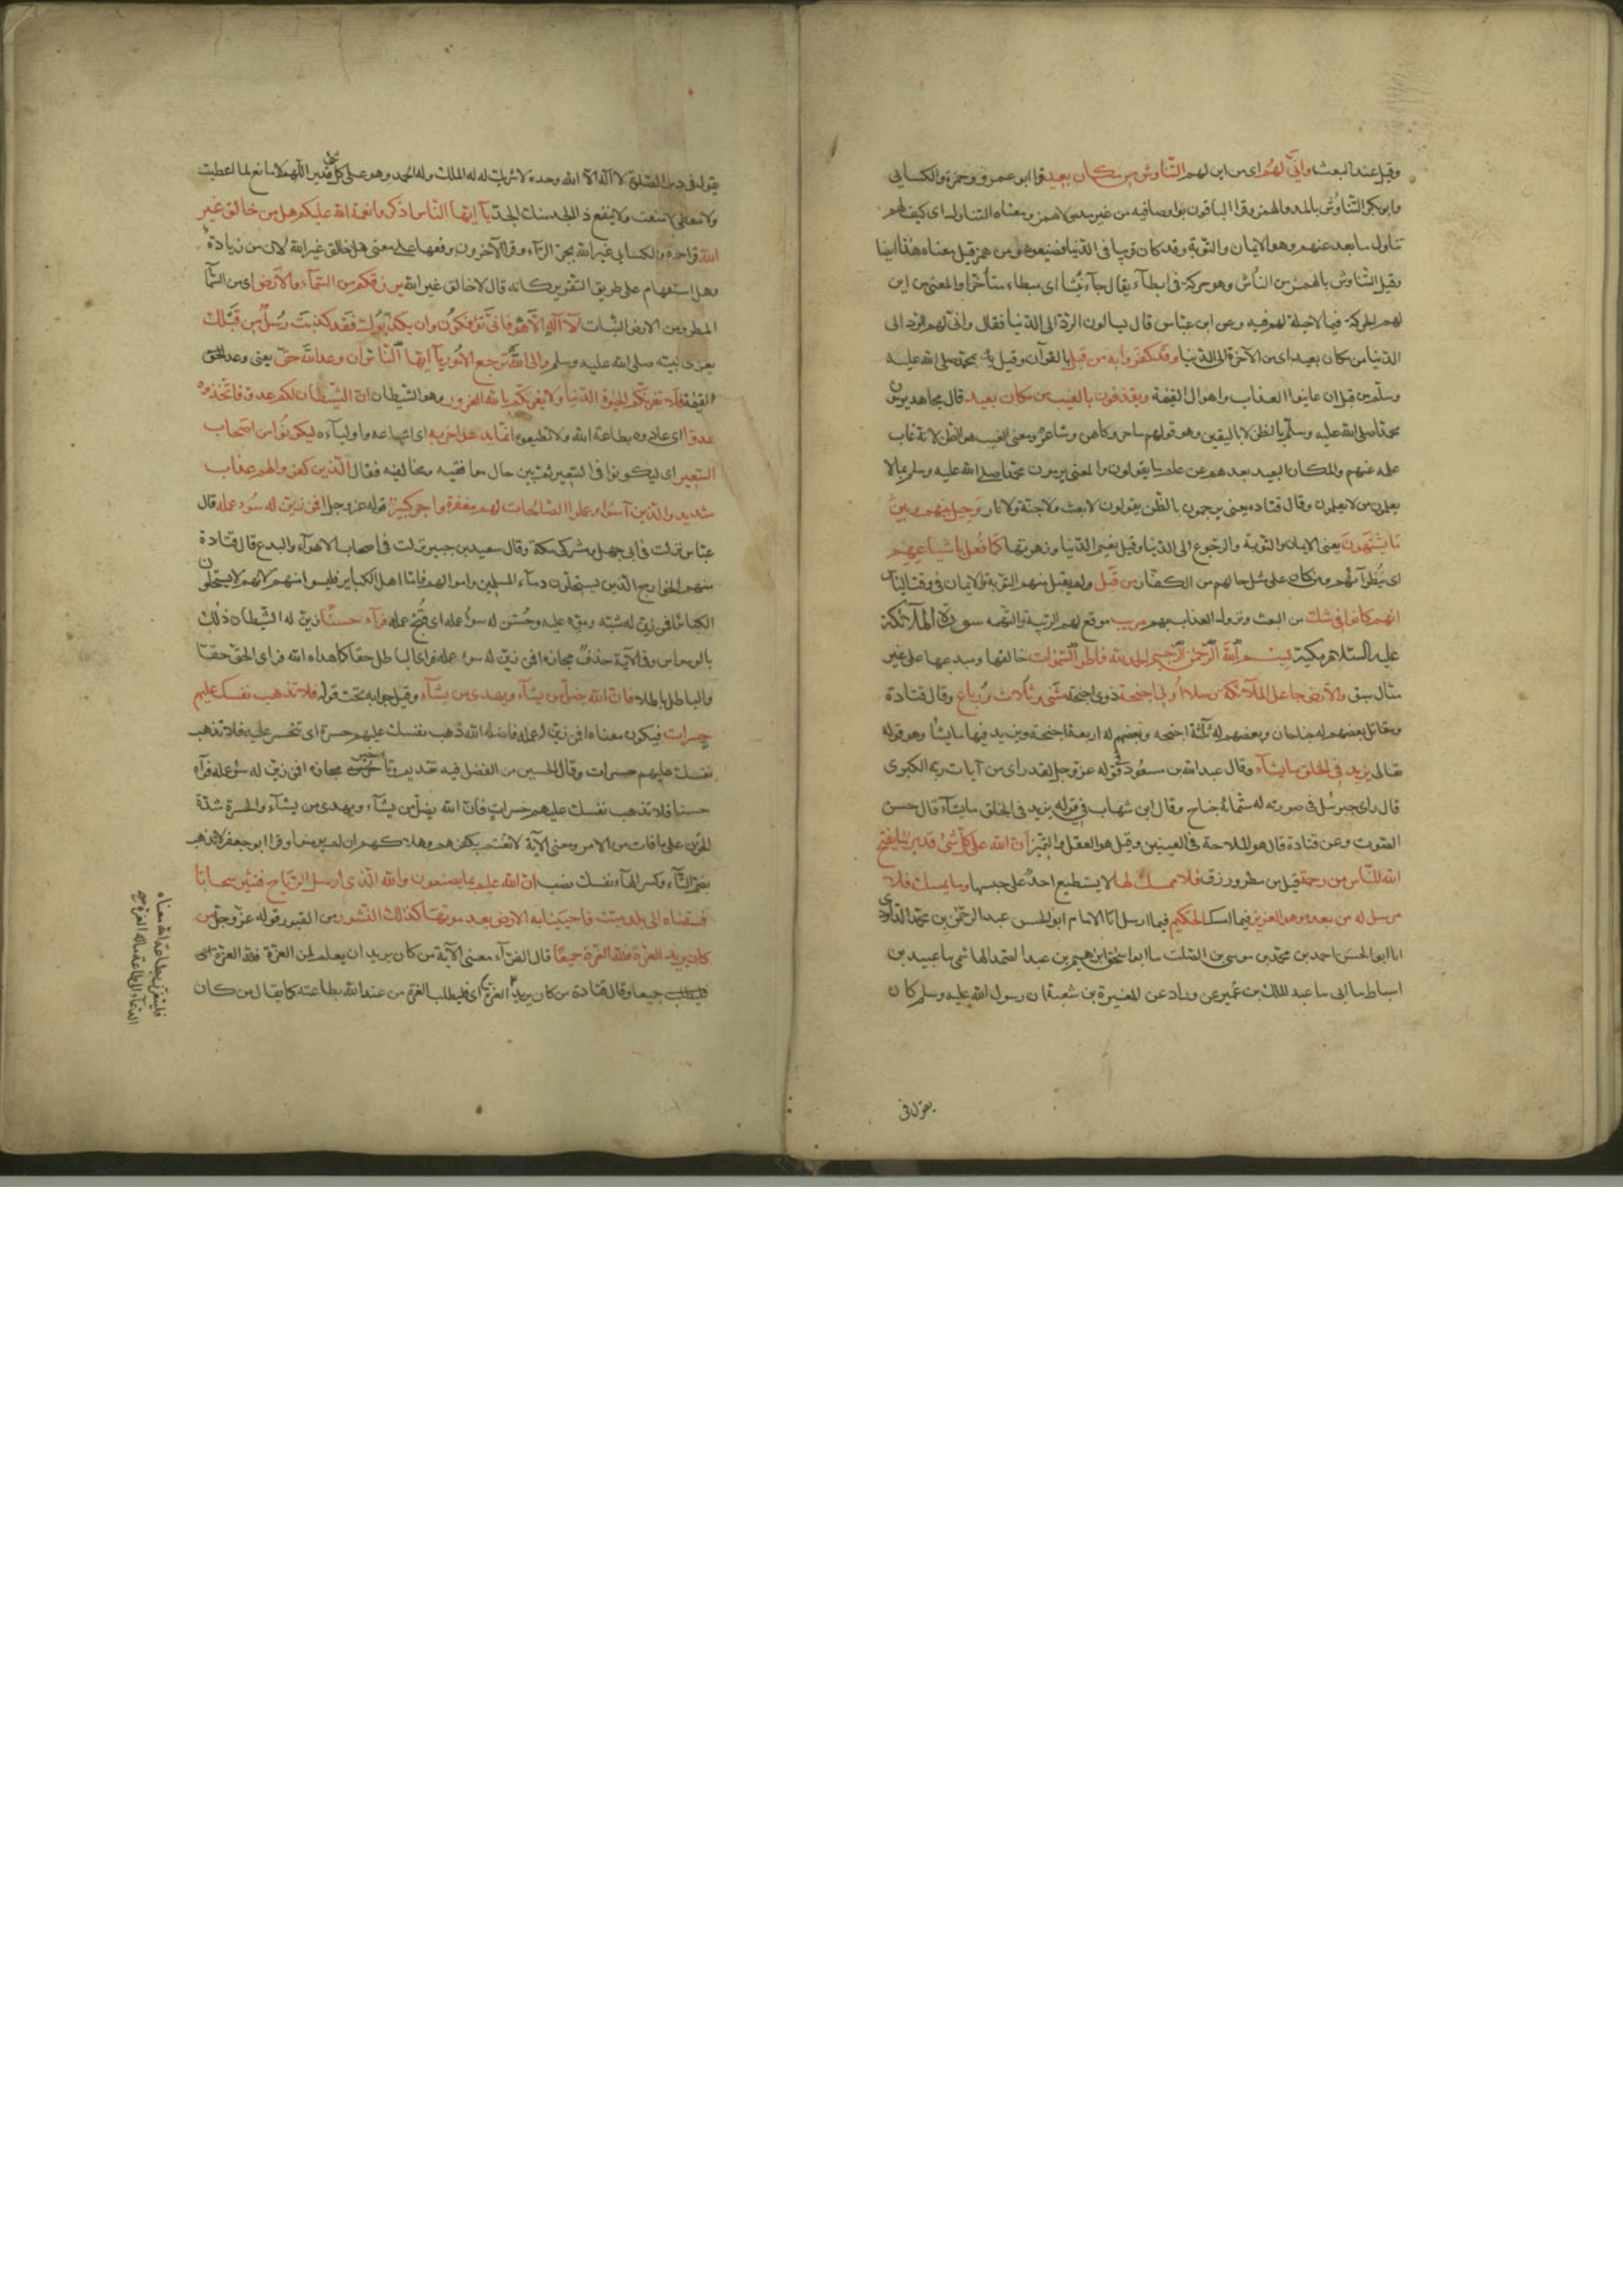 وقيل عند البعث وانّى لهم اى من اين لهم التناوش من مكان بعيد قرا ابو عمرو وحمزة والكسايى
وابو بكر التناؤش بالمد والهمز وقرا الباقون بواو صافية من غير مد ولا همز ومعناه التناول اى كيف لهم
تناول ما بعد عنهم وهو الايمان والتوبة وقد كان قريبا فى الدنيا فضيعوه ومن همز قيل معناه هذا ايضا
وقيل التناوش بالهمز من النأش وهو حركة فى ابطآء يقال جآء نئشا اى مبطاء متأخرا والمعنى من اين
لهم الحركة فيما لا حيلة لهم فيه وعن ابن عباس قال يسالون الردّ الى الدنيا فقال وانّى لهم الرد الى
الدنيا من مكان بعيد اى من الآخرة الى الدنيا وقد كفروا به من قبل بالقرآن وقيل بمحمد صلى الله عليه
وسلم من قبل ان عاينوا العذاب واهوال القيمة ويقذفون بالغيب من مكان بعيد قال مجاهد يرمون
محمدا صلى الله عليه وسلم بالظن لا باليقين وهو قولهم ساحر وكاهن وشاعر ومعنى الغيب هو الظن لانه غاب
علمه عنهم والمكان البعيد بعدهم عن علم ما يقولون والمعنى يرمون محمدا صلى الله عليه وسلم بما لا
يعلمون من لا يعلمون وقال قتاده يعنى يرجمون بالظن يقولون لا بعث ولا جنة ولا نار وحيل بينهم وبين
ما يشتهون يعنى الايمان والتوبة والرجوع الى الدنيا وقيل نعيم الدنيا وزهرتها كما فعل باشياعهم
اى بنظرآئهم ومن كان على مثل حالهم من الكفار من قبل ولم يقبل منهم التوبة والايمان فى وقت اليأس
انهم كانوا فى شك من البعث ونزول العذاب بهم مريب موقع لهم الريبة والتهمه سورة الملآئكة
عليهم السلام مكية بسم الله الرحمن الرحيم الحمد لله فاطر السموات خالقها ومبدعها على غير
مثال سبق والارض جاعل الملآئكة رسلا اولى اجنحة ذوى اجنحة مثنى وثلاث ورباع وقال قتادة
ومقاتل بعضهم له جناحان وبعضهم له ثلثة اجنحة وبعضهم له اربعة اجنحة ويزيد فيها ما يشاء وهو قوله
تعالى يزيد فى الخلق ما يشآء وقال عبد الله بن مسعود فى قوله عز وجل لقد راى من آيات ربه الكبرى
قال راى جبرئيل فى صورته له ستمائة جناح وقال ابن شهاب فى قوله يزيد فى الخلق ما يشآء قال حسن
الصوت وعن قتادة قال هو الملاحة فى العينين وقيل هو العقل والتمييز ان الله على كل شئ قدير ما يفتح
الله للناس من رحمة قيل من مطر ورزق فلا ممسك لها لا يستطيع احد على حبسها وما يمسك فلا
مرسل له من بعده وهو العزيز فيما امسك الحكيم فيما ارسل انا الامام ابو الحسن عبد الرحمن بن محمد الداودى
انا ابو الحسن احمد بن محمد بن موسى بن الصلت سا ابو اسحق ابراهيم بن عبد الصمد الهاشمى سا عبيد بن
اسباط سا ابى سا عبد الملك بن عمير عن وراد عن المغيرة بن شعبة ان رسول الله عليه وسلم كان
يقول فى
يقول فى دبر الصلوة لا اله الا الله وحده لا شريك له له الملك وله الحمد وهو على كل شئ قدير اللهم لا مانع لما اعطيت
ولا معطى لما منعت ولا ينفع ذا الجد منك الجد يآ ايها الناس اذكروا نعمة الله عليكم هل من خالق غير
الله قرا حمزه والكسايى غير الله بجر الرآء وقرا الآخرون برفعها على معنى هل خالق غير الله لان من زيادة
وهل استفهام على طريق التقرير كانه قال لا خالق غير الله يرزقكم من السمآء والارض اى من السمآ
المطر ومن الارض النبات لآ اله الا هو فانى تؤفكون وان يكذبوك فقد كذبت رسل من قبلك
يعزى نبيه صلى الله عليه وسلم والى الله ترجع الامور يآ ايها الناس ان وعد الله حق يعنى وعد الحق
القيمة فلا تغرنكم الحيوة الدنيا ولا يغرنكم بالله الغرور وهو الشيطان ان الشيطان لكم عدو فاتخذوه
عدوا اى عادوه بطاعة الله ولا تطيعوه انما يدعو حزبه اى اتباعه واوليآءه ليكونوا من اصحاب
السعير اى ليكونوا فى السعير ثم بين حال موافقيه ومخالفيه فقال الذين كفروا لهم عذاب
شديد والذين آمنوا وعملوا الصالحات لهم مغفرة واجر كبير قوله عز وجل افمن زين له سوء عمله قال
عباس نزلت فى ابى جهل ومشركى مكة وقال سعيد بن جبير نزلت فى اصحاب الاهوآء والبدع قال قتادة
منهم الخوارج الذين يستحلون دمآء المسلمين واموالهم فاما اهل الكباير فليسوا منهم لانهم لا يستحلون
الكبائر افمن زين له شبه وموه عليه وحسن له سوء عمله اى قبح عمله فرآه حسنا زين له الشيطان ذلك
بالوسواس وفى الآية حذف مجازه افمن زين له سوء عمله فراى الباطل حقا كمن هداه الله فراى الحق حقا
والباطل باطلا فان الله يضل من يشآء ويهدى من يشآء وقيل جوابه تحت قوله فلا تذهب نفسك عليهم
حسرات فيكون معناه افمن زين له عمله فاضله الله ذهب نفسك عليهم حسرة اى تتحسر عليه فلا تذهب
نفسك عليهم حسرات وقال الحسين بن الفضل فيه تقديم وتأخير مجازه افمن زين له سوء عمله فرآه
حسنا فلا تذهب نفسك عليهم حسرات فان الله يضل من يشآء ويهدى من يشآء والحسرة شدة
الحزن على ما فات من الامر ومعنى الآية لا تغتم بكفرهم وهلاكهم ان لم يؤمنوا وقرا ابو جعفر لا تذهب
بضم التآء وكسر الهآء نفسك نصب ان الله عليم بما يصنعون والله الذى ارسل الرياح فتثير سحابا
فسقناه الى بلد ميت فاحيينا به الارض بعد موتها كذلك النشور من القبور قوله عز وجل من
كان يريد العزة فلله العزة جميعا قال الفرآء معنى الآية من كان يريد ان يعلم لمن العزة فلله العزة
جميعا وقال قتادة من كان يريد العزة اى فليطلب العزة من عند الله بطاعته كما يقال من كان
فليتعزز بطاعة الله معناه
الدعآء الى طاعة من له العزة